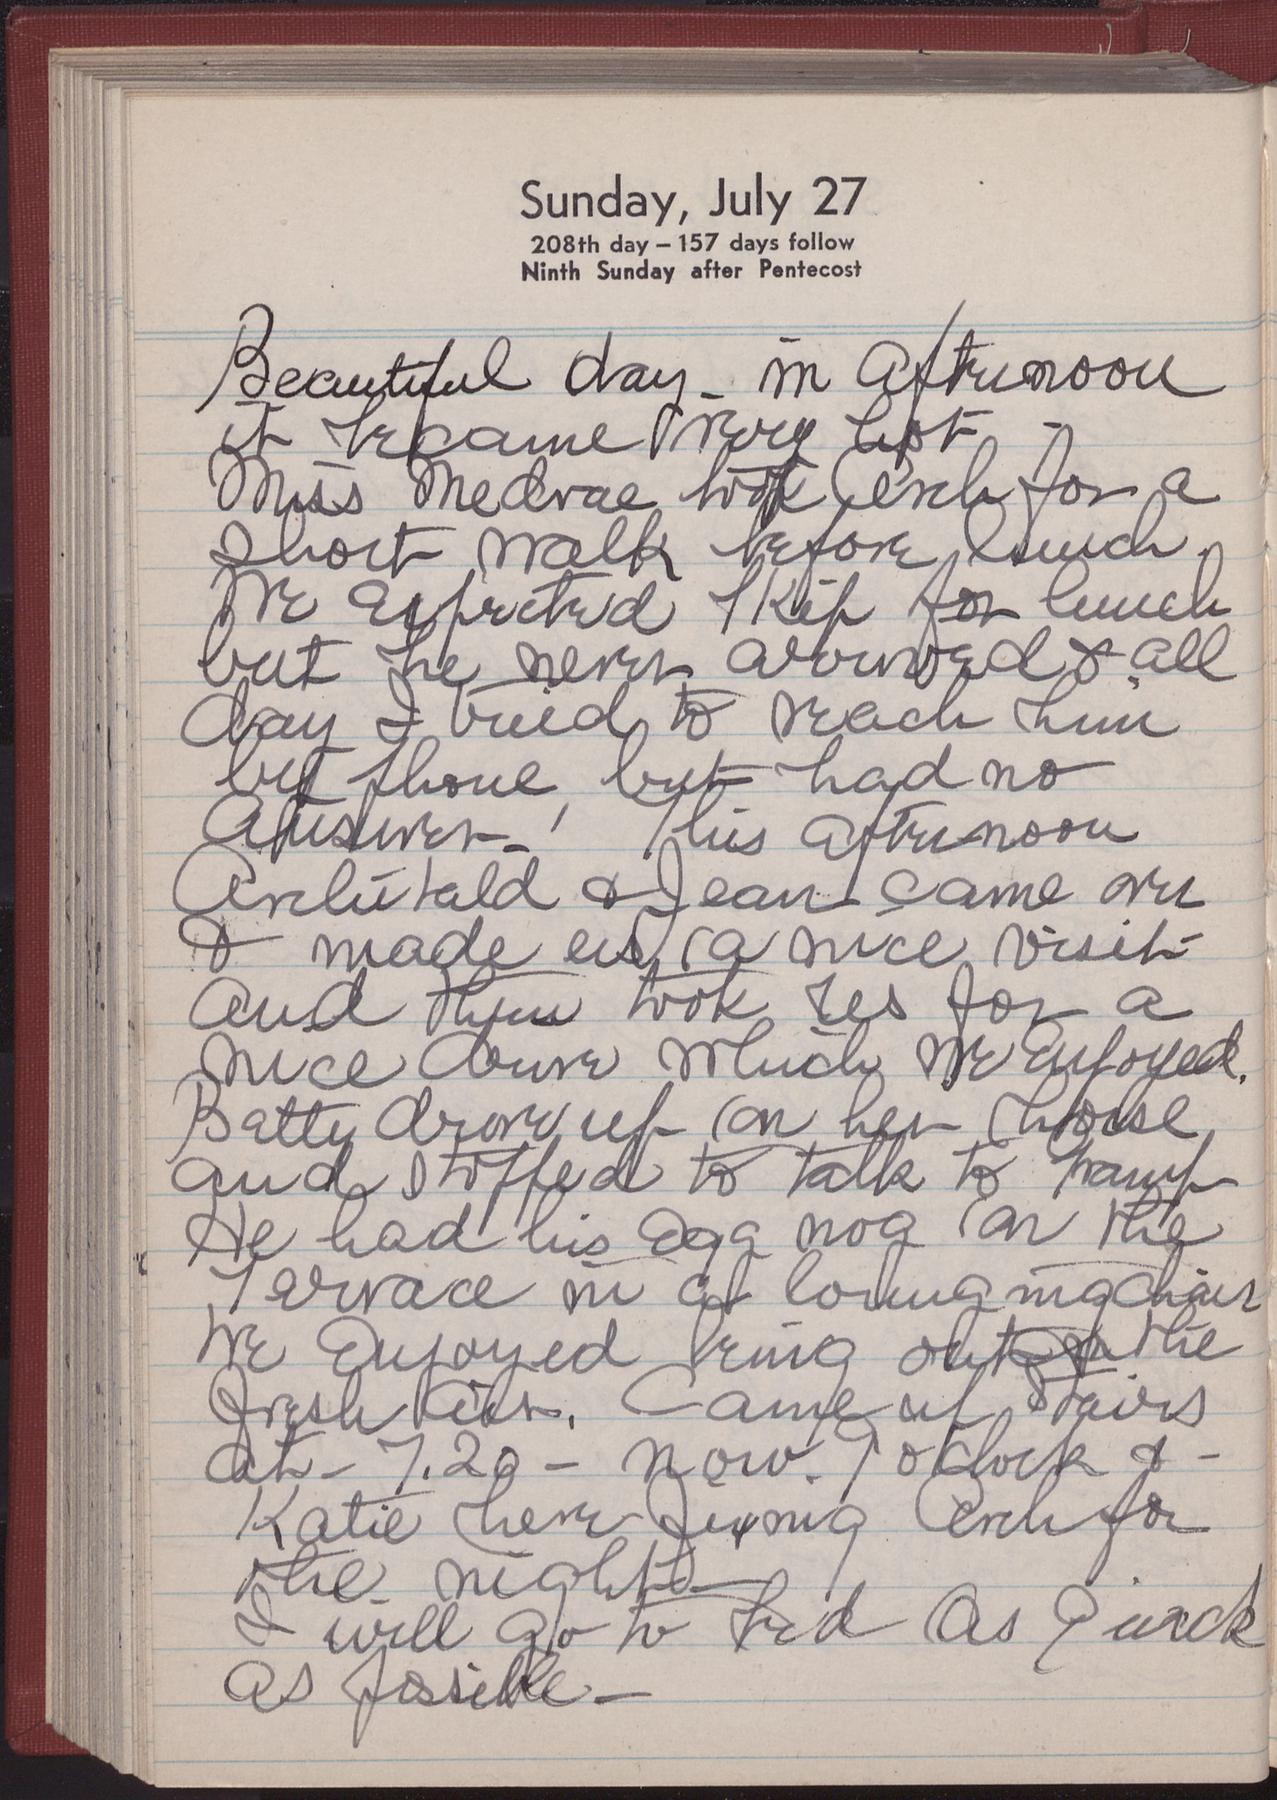 Sunday, July 27
208th day – 157 days follow
Ninth Sunday after Pentecost
Beautiful day - in afternoon
it became very hot -
Miss Medrae took Arch for a
short walk before lunch.
We expected Skip for lunch
but he never arrived & all
day I tried to reach him
by phone, but had no
Answer - ! This afternoon
Archibald & Jean came over
& made us a nice visit
and then took us for a
nice drive which we enjoyed.
Betty drove up on her horse
and stopped to talk to
He had his Egg nog on the
Terrace in a loungingchair
We Enjoyed being out in the
fresh air. Came up stairs
at - 7.20 - now. 9 oclock & -
Katie here fixing Arch for
the night -
I will go to bed as quick
as possible -